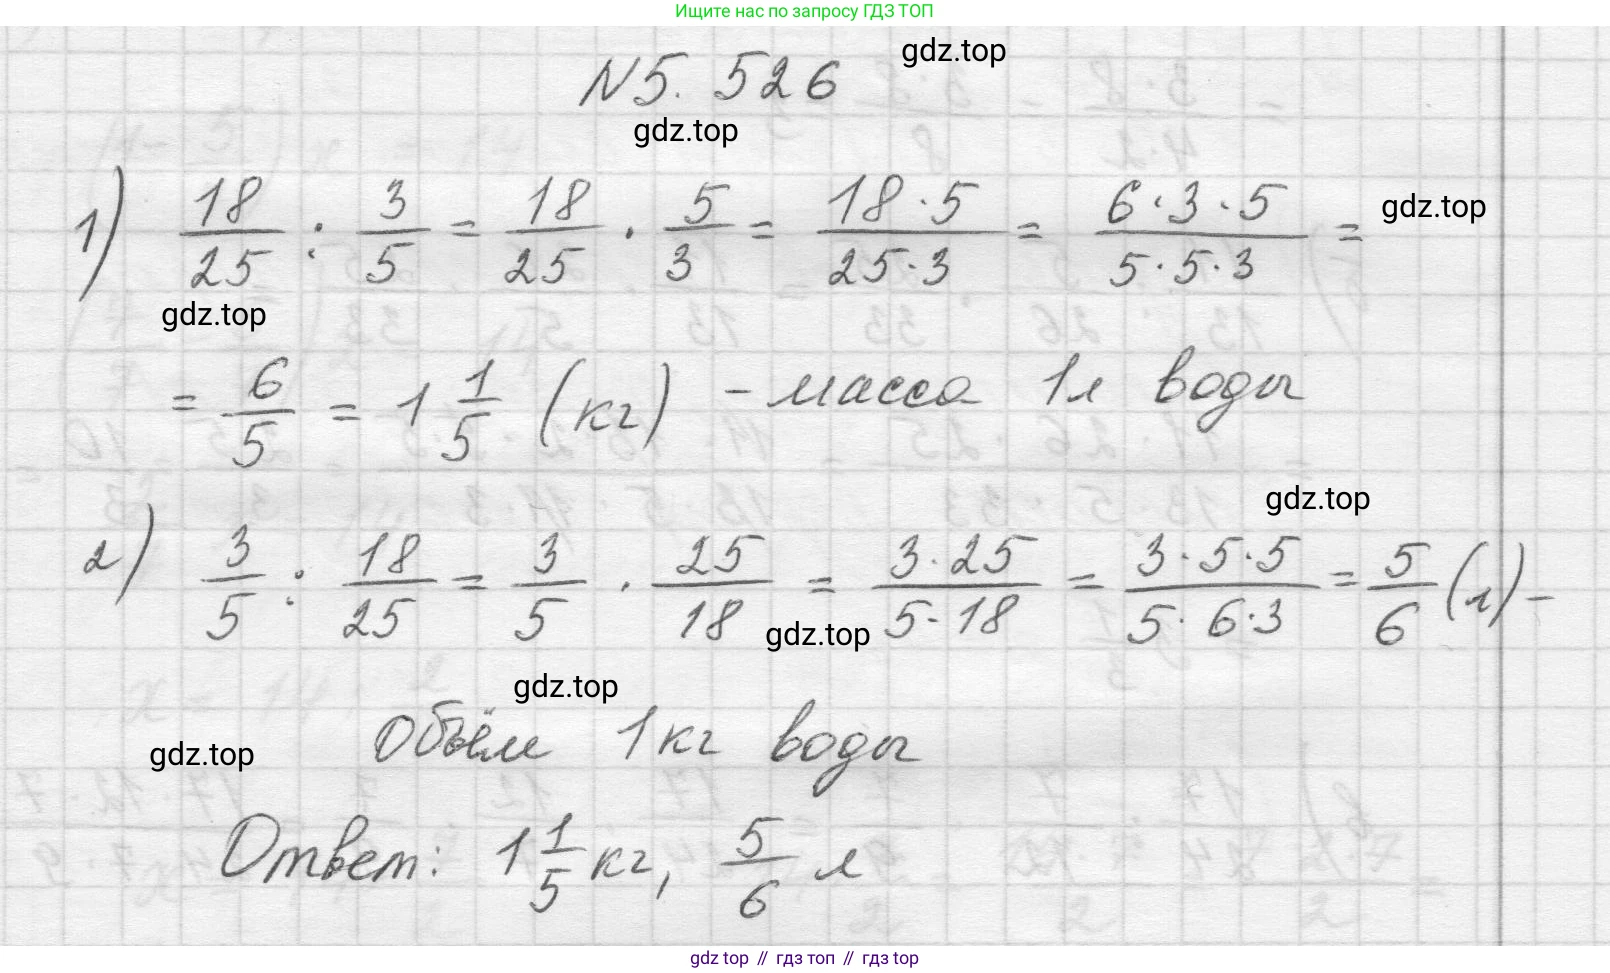 Ищите нас по запросу ГДЗ ТОП
gdz.top
N5. 526
gdz.top
1) 18/25 : 3/5 = 18/25 · 5/3 = 18·5/25·3 = 6·3·5/5·5·3 =
gdz.top
gdz.top
= 6/5 = 1 1/5 (кг) - масса 1л воды
gdz.top
2) 3/5 : 18/25 = 3/5 · 25/18 = 3·25/5·18 = 3·5·5/5·6·3 = 5/6 (л) -
gdz.top
gdz.top
Объём 1кг воды
gdz.top
Ответ: 1 1/5 кг, 5/6 л
gdz top // гдз топ // гдз top